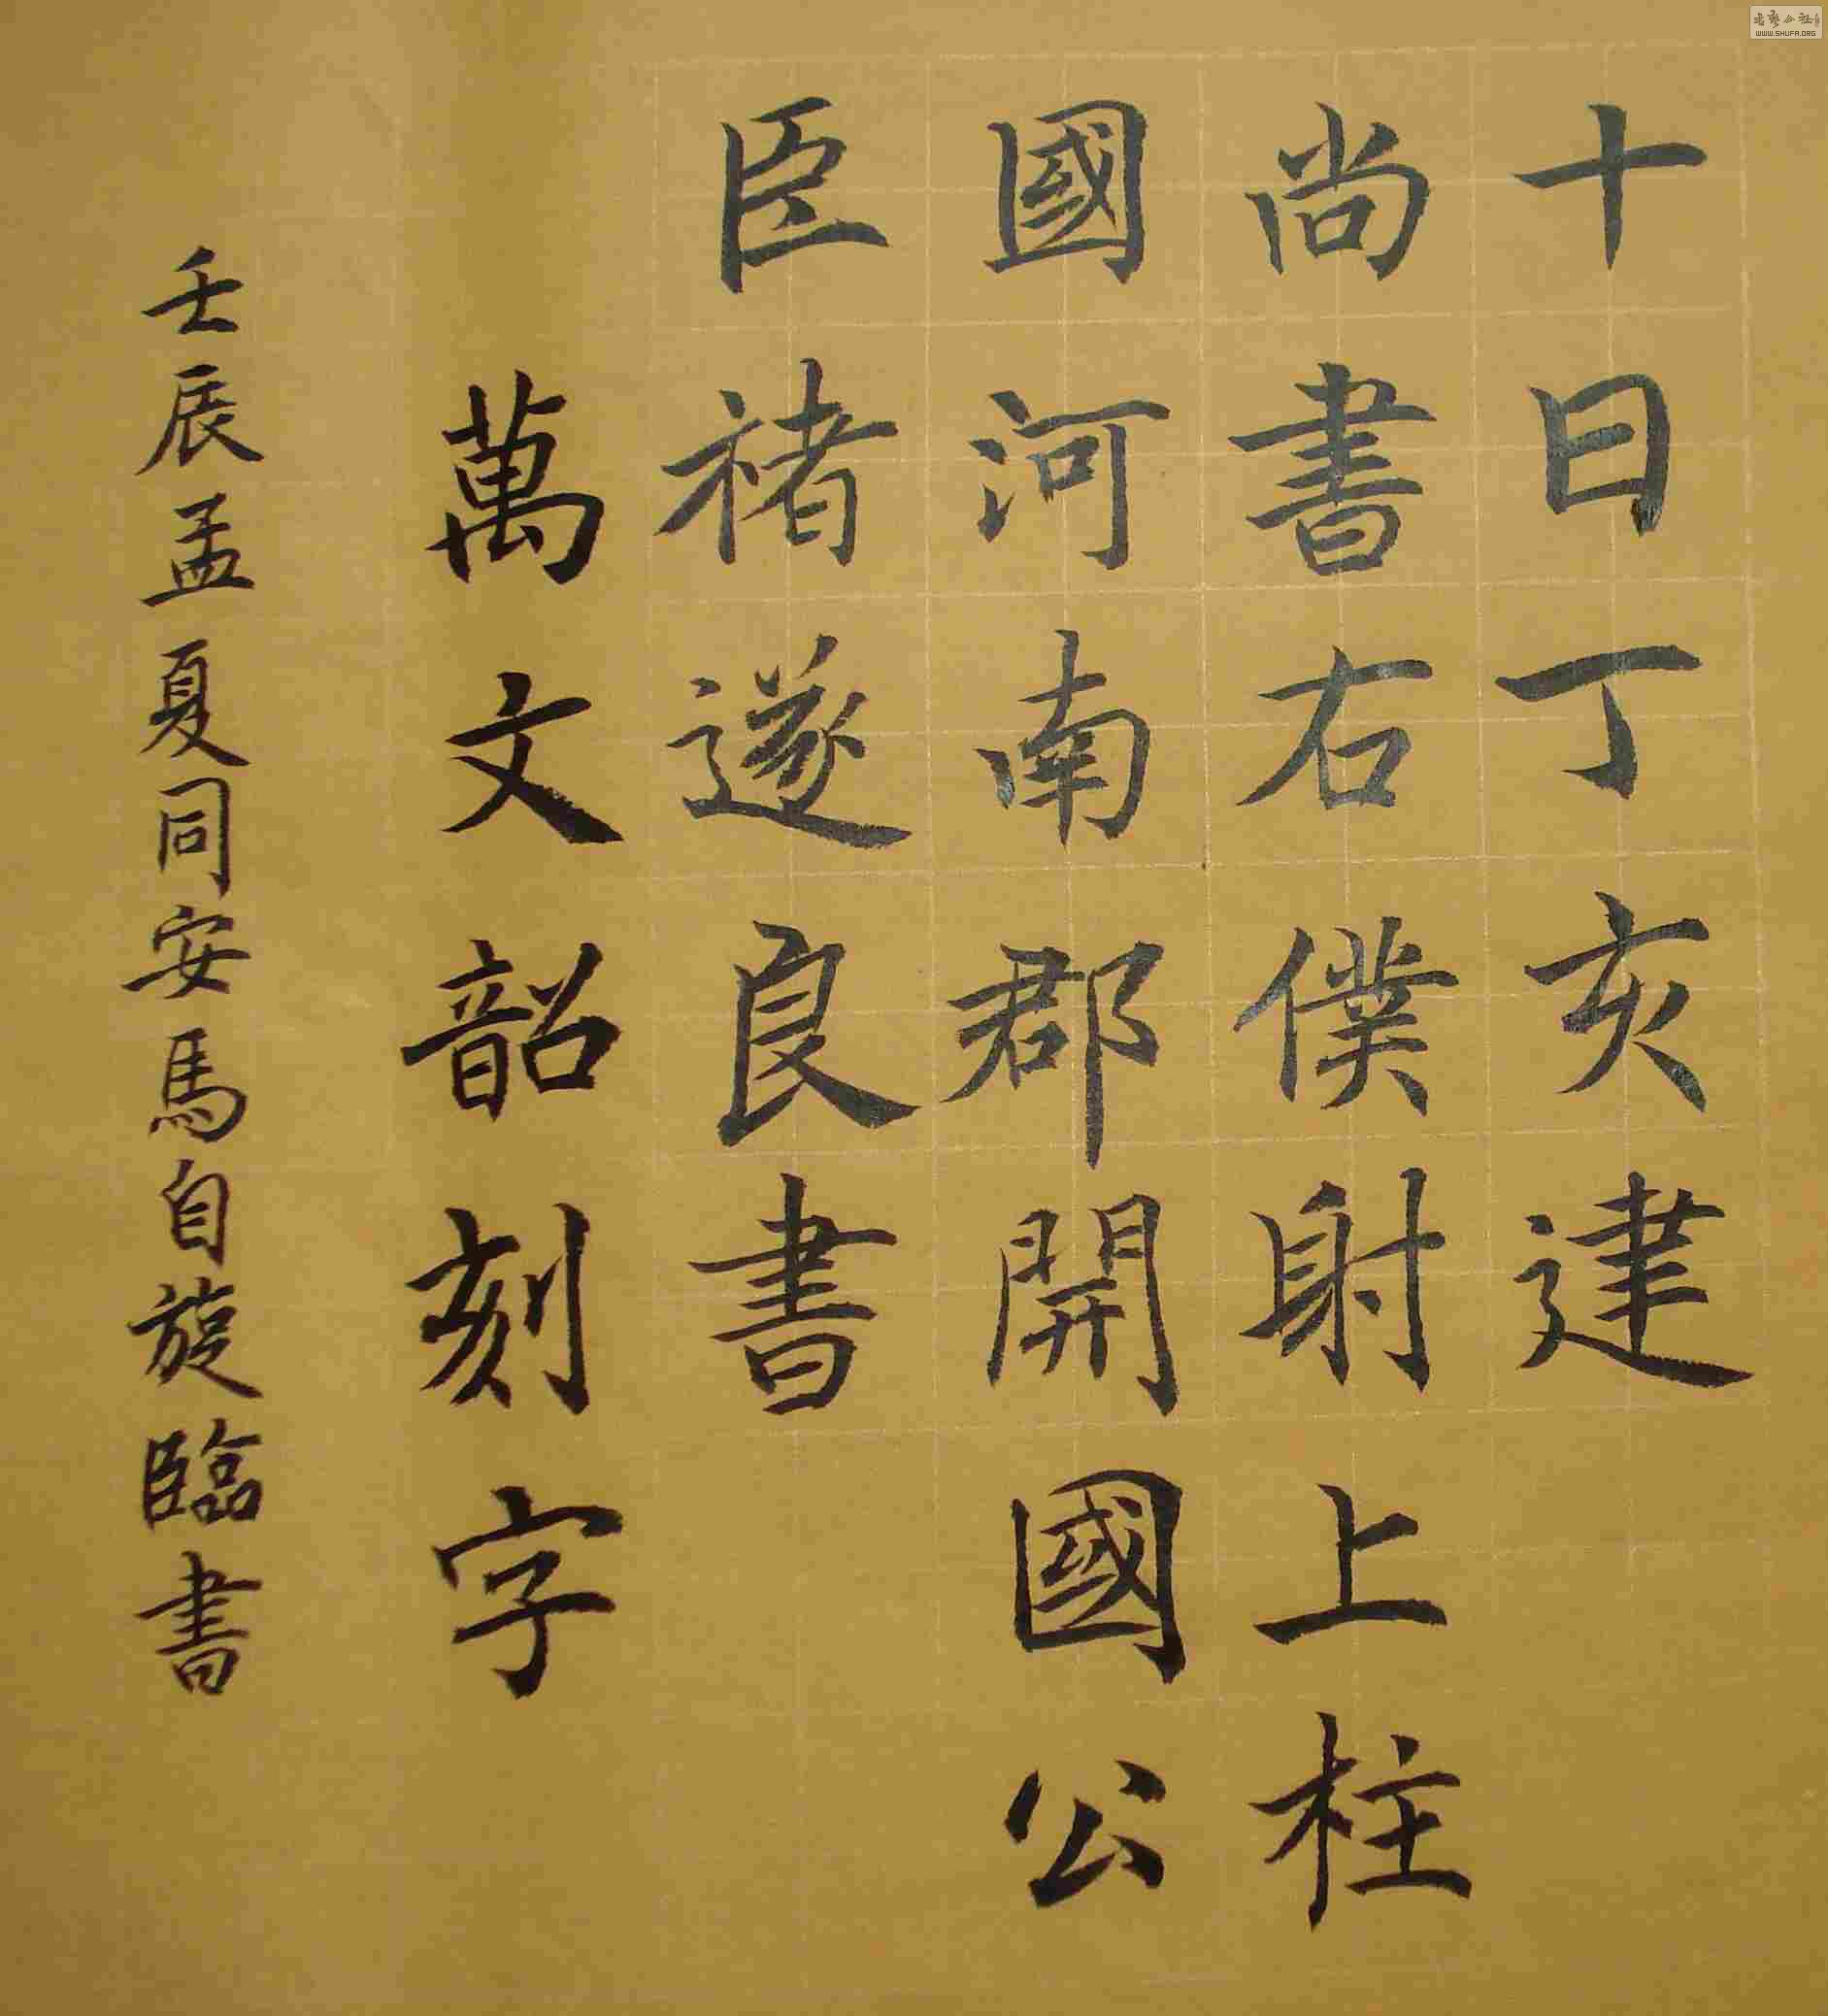 十日丁亥建
尚書右僕射上柱
國河南郡開國公
臣褚遂良書
萬文韶刻字
壬辰孟夏同安馬自旋臨書
WWW.SHUFA.ORG